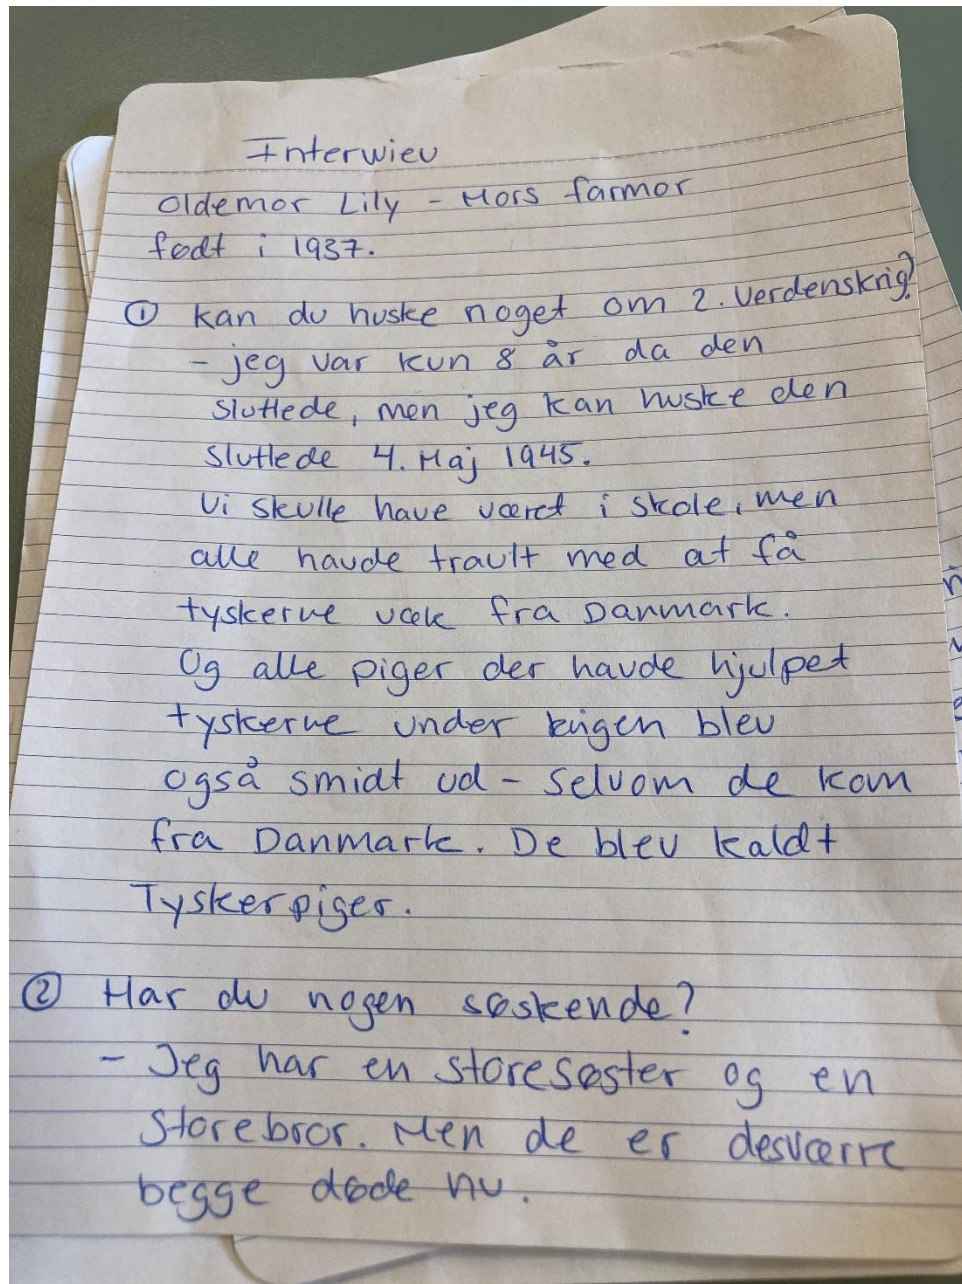 Interwiev
Oldemor Lily - Mors farmor
født i 1937.
① kan du huske noget om 2. Verdenskrig?
- jeg var kun 8 år da den
sluttede, men jeg kan huske den
sluttede 4. Maj 1945.
Vi skulle have været i skole, men
alle havde travlt med at få
tyskerne væk fra Danmark.
Og alle piger der havde hjulpet
tyskerne under krigen blev
også smidt ud - selvom de kom
fra Danmark. De blev kaldt
Tyskerpiger.
② Har du nogen søskende?
- Jeg har en storesøster og en
Storebror. Men de er desværre
begge døde nu.